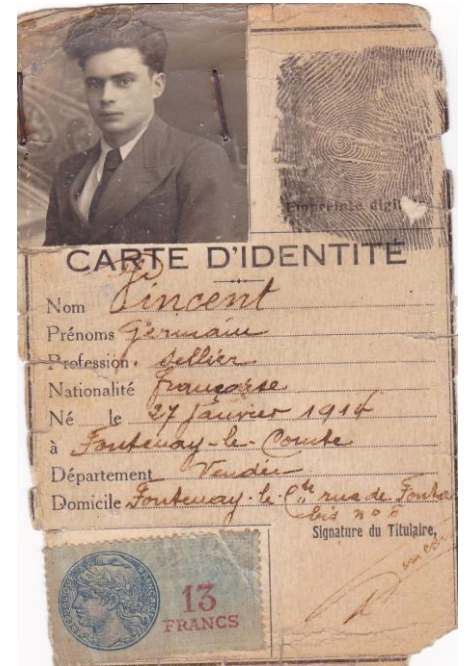 Empreinte digi
CARTE D'IDENTITÉ
Nom Vincent
Prénoms Germain
Profession. sellier
Nationalité française
Né le 27 janvier 1914
à Fontenay-le-Comte
Département Vendée
Domicile Fontenay-le-Cte rue de
bis n°
Signature du Titulaire,
13
FRANCS